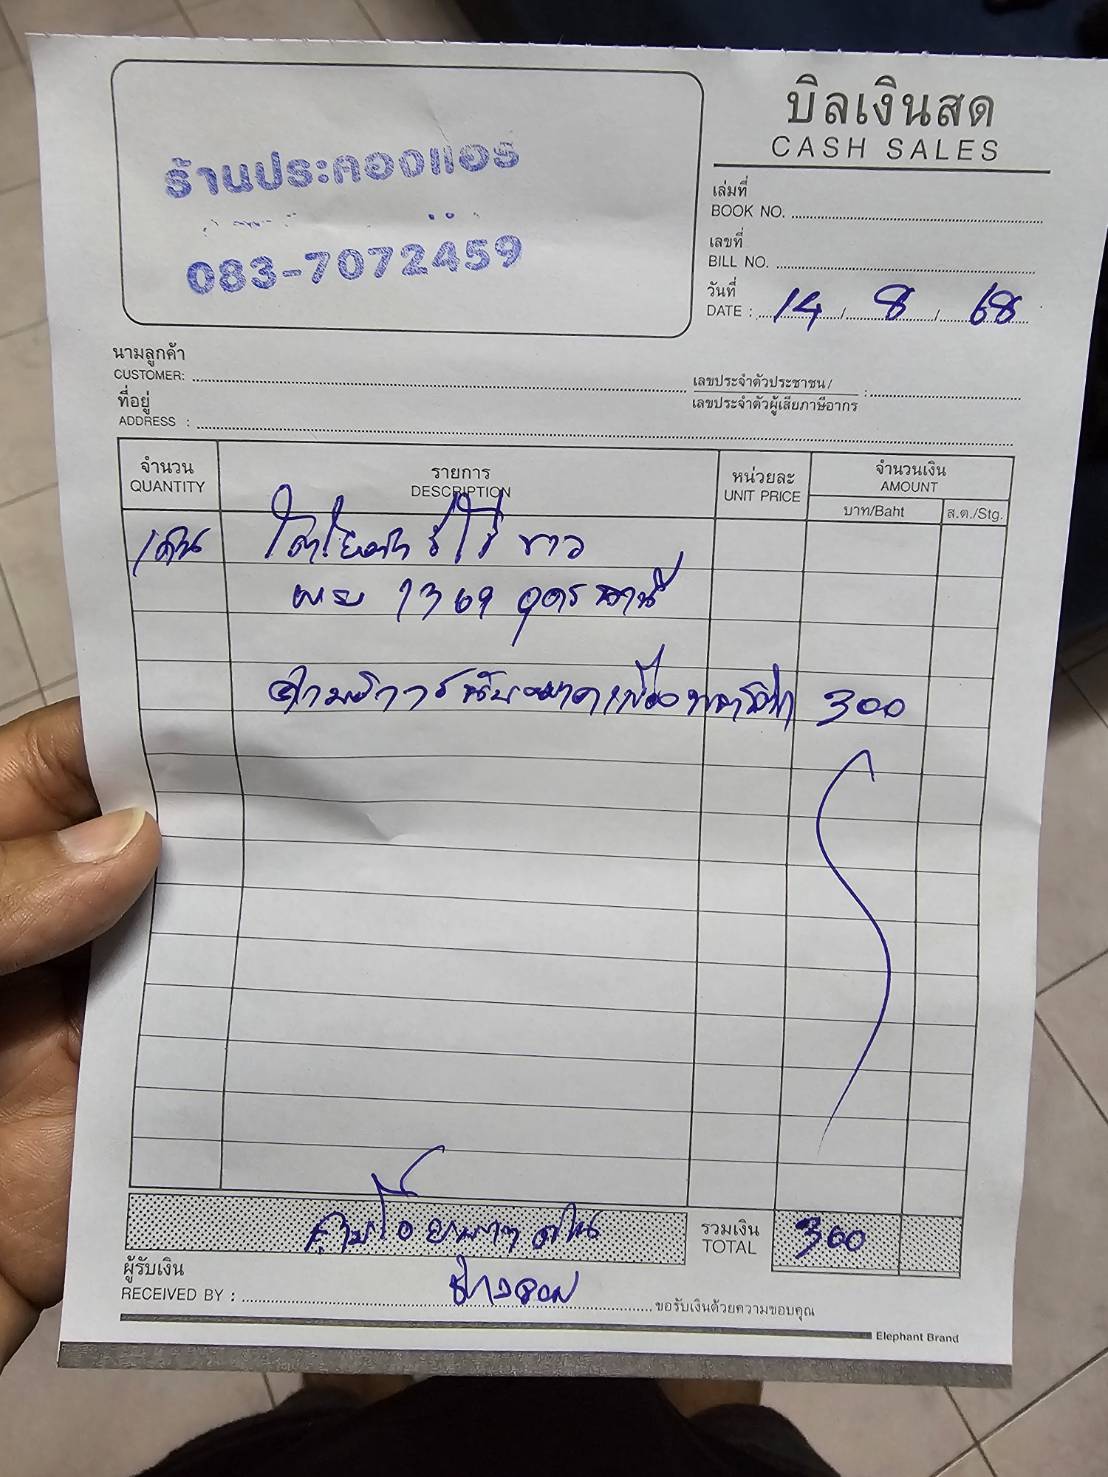 บิลเงินสด
CASH SALES
ร้านประคองแอร์
083-7072459
เล่มที่
BOOK NO.
เลขที่
BILL NO.
วันที่
DATE : 14 / 8 / 68
นามลูกค้า
CUSTOMER:
เลขประจำตัวประชาชน /
เลขประจำตัวผู้เสียภาษีอากร :
ที่อยู่
ADDRESS :
จำนวน รายการ หน่วยละ จำนวนเงิน
QUANTITY DESCRIPTION UNIT PRICE AMOUNT
บาท/Baht ส.ต./Stg.
1 คัน โตโยต้า รีโว่ ขาว
1369 อุดรธานี
ค่าบริการ 300
รวมเงิน
TOTAL 300
ผู้รับเงิน
RECEIVED BY :
ขอรับเงินด้วยความขอบคุณ
Elephant Brand